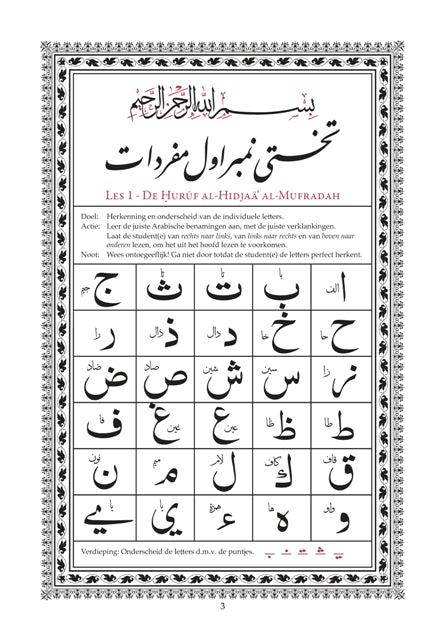 بِسْمِ اللهِ الرَّحْمٰنِ الرَّحِيْمِ
تختی نمبر اول مفردات
Les 1 - De Ḥurūf al-Hidjaā' al-Mufradah
Doel: Herkenning en onderscheid van de individuele letters.
Actie: Leer de juiste Arabische benamingen aan, met de juiste verklankingen.
Laat de student(e) van rechts naar links, van links naar rechts en van boven naar
onderen lezen, om het uit het hoofd lezen te voorkomen.
Noot: Wees ontoegeeflijk! Ga niet door totdat de student(e) de letters perfect herkent.
ا الف ب با ت تا ث ثا ج جيم
ح حا خ خا د دال ذ ذال ر را
ز زا س سين ش شين ص صاد ض ضاد
ط طا ظ ظا ع عين غ غين ف فا
ق قاف ك كاف ل لام م ميم ن نون
و واو ه ها ء همزة ي يا ے يا
Verdieping: Onderscheid de letters d.m.v. de puntjes.
3